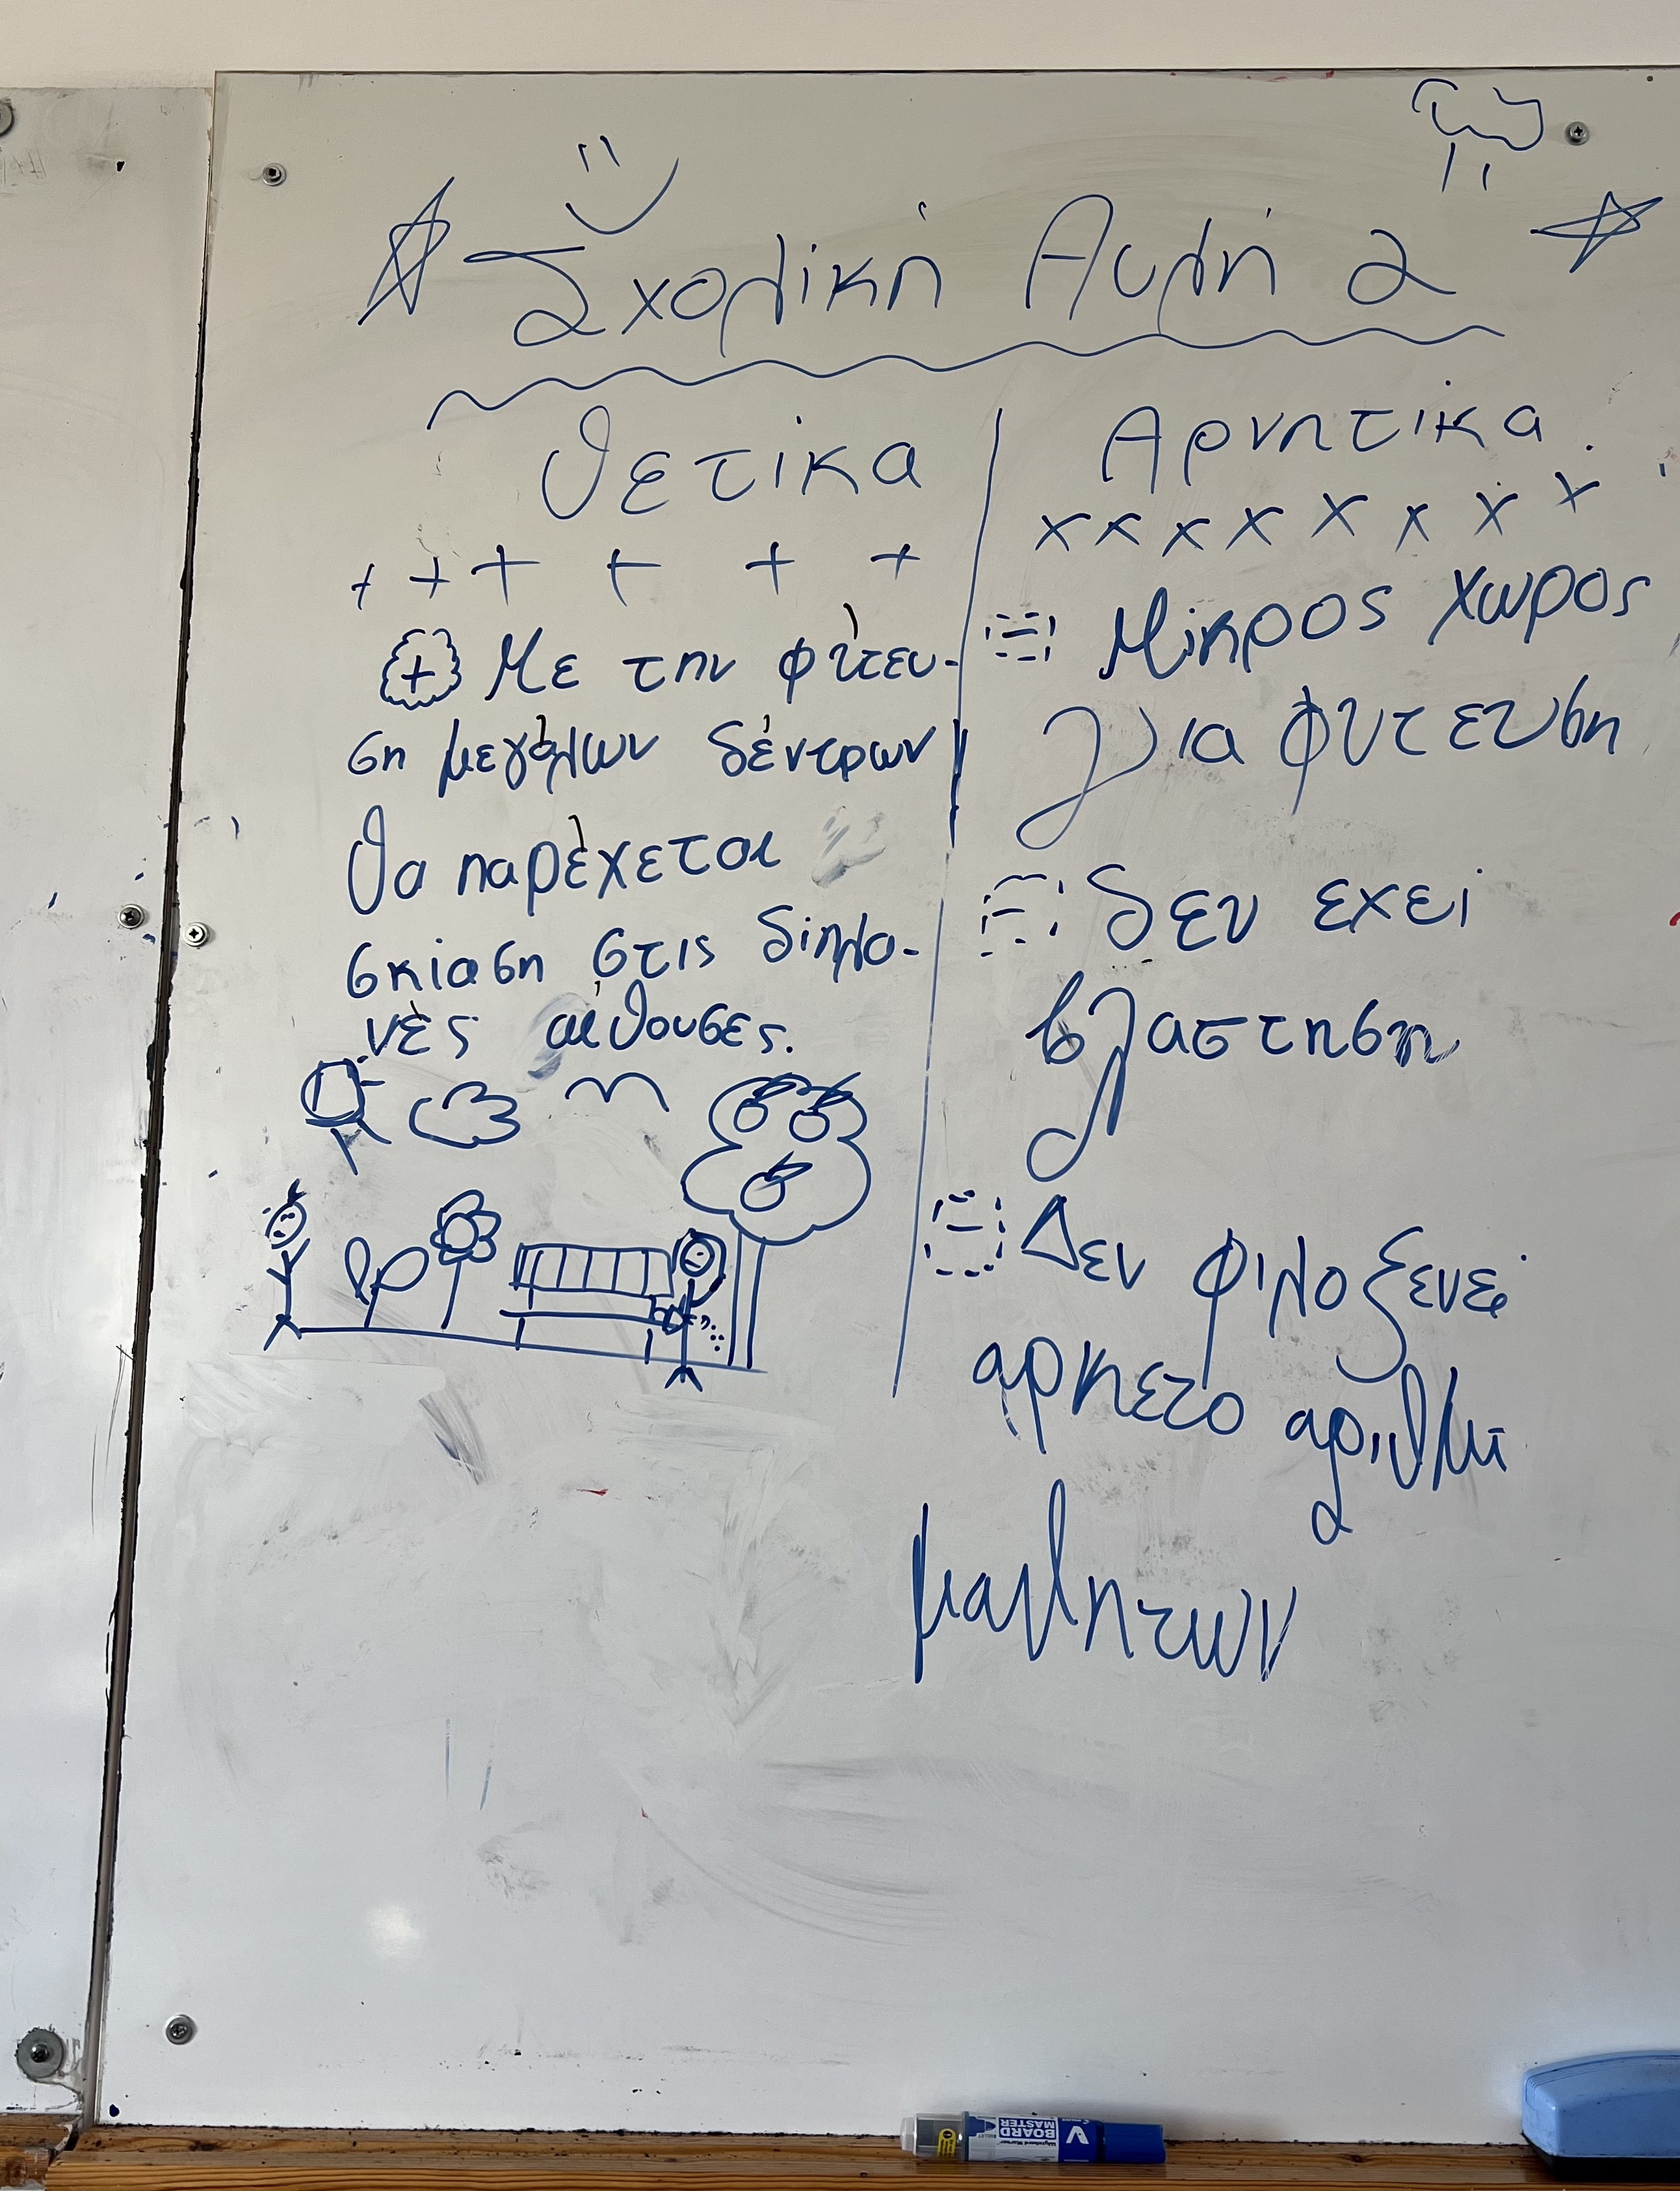 Σχολική Αυλή 2
θετικα
Αρνητικα.
+ + + + + +
x x x x x x x x
⊕ Με την φύτευ-
ση μεγάλων δέντρων
θα παρέχεται
σκιαση στις διπλα-
νές αίθουσες.
- Μικρος χωρος
για φυτευση
- δεν εχει
βλαστηση
- Δεν φιλοξενει
αρκετο
μαθητων
V BOARD MASTER